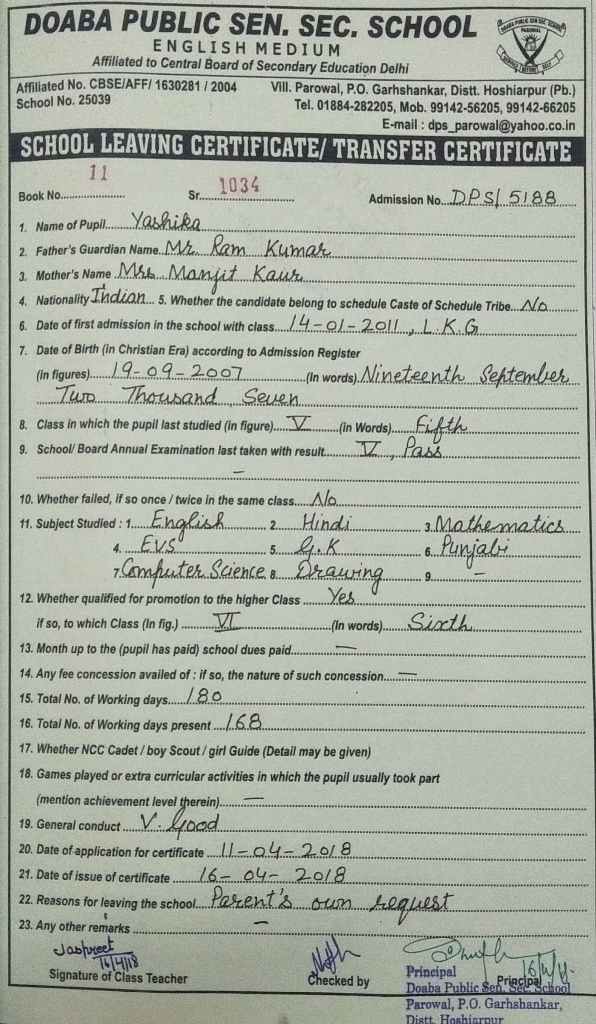 DOABA PUBLIC SEN. SEC. SCHOOL
ENGLISH MEDIUM
Affiliated to Central Board of Secondary Education Delhi
DOABA PUBLIC SEN. SEC. SCHOOL
PAROWAL
SERVICE BEFORE SELF
Affiliated No. CBSE/AFF/ 1630281 / 2004
School No. 25039
Vill. Parowal, P.O. Garhshankar, Distt. Hoshiarpur (Pb.)
Tel. 01884-282205, Mob. 99142-56205, 99142-66205
E-mail : dps_parowal@yahoo.co.in
SCHOOL LEAVING CERTIFICATE/ TRANSFER CERTIFICATE
Book No. 11 Sr. 1034 Admission No. DPS/ 5188
1. Name of Pupil Yashika
2. Father's Guardian Name Mr. Ram Kumar
3. Mother's Name Mrs Manjit Kaur
4. Nationality Indian 5. Whether the candidate belong to schedule Caste of Schedule Tribe No
6. Date of first admission in the school with class 14-01-2011, L.K.G
7. Date of Birth (in Christian Era) according to Admission Register
(in figures) 19-09-2007 (In words) Nineteenth September
Two Thousand Seven
8. Class in which the pupil last studied (in figure) V (in Words) Fifth
9. School/ Board Annual Examination last taken with result V, Pass
–
10. Whether failed, if so once / twice in the same class No
11. Subject Studied : 1. English 2. Hindi 3. Mathematics
4. EVS 5. G.K 6. Punjabi
7. Computer Science 8. Drawing 9. –
12. Whether qualified for promotion to the higher Class Yes
if so, to which Class (In fig.) VI (In words) Sixth
13. Month up to the (pupil has paid) school dues paid –
14. Any fee concession availed of : if so, the nature of such concession –
15. Total No. of Working days 180
16. Total No. of Working days present 168
17. Whether NCC Cadet / boy Scout / girl Guide (Detail may be given)
18. Games played or extra curricular activities in which the pupil usually took part
(mention achievement level therein) –
19. General conduct V. Good
20. Date of application for certificate 11-04-2018
21. Date of issue of certificate 16-04-2018
22. Reasons for leaving the school Parent's own request
23. Any other remarks –
Jaspreet
16/4/18
Signature of Class Teacher Checked by Principal
Principal
Doaba Public Sen. Sec. School
Parowal, P.O. Garhshankar,
Distt. Hoshiarpur